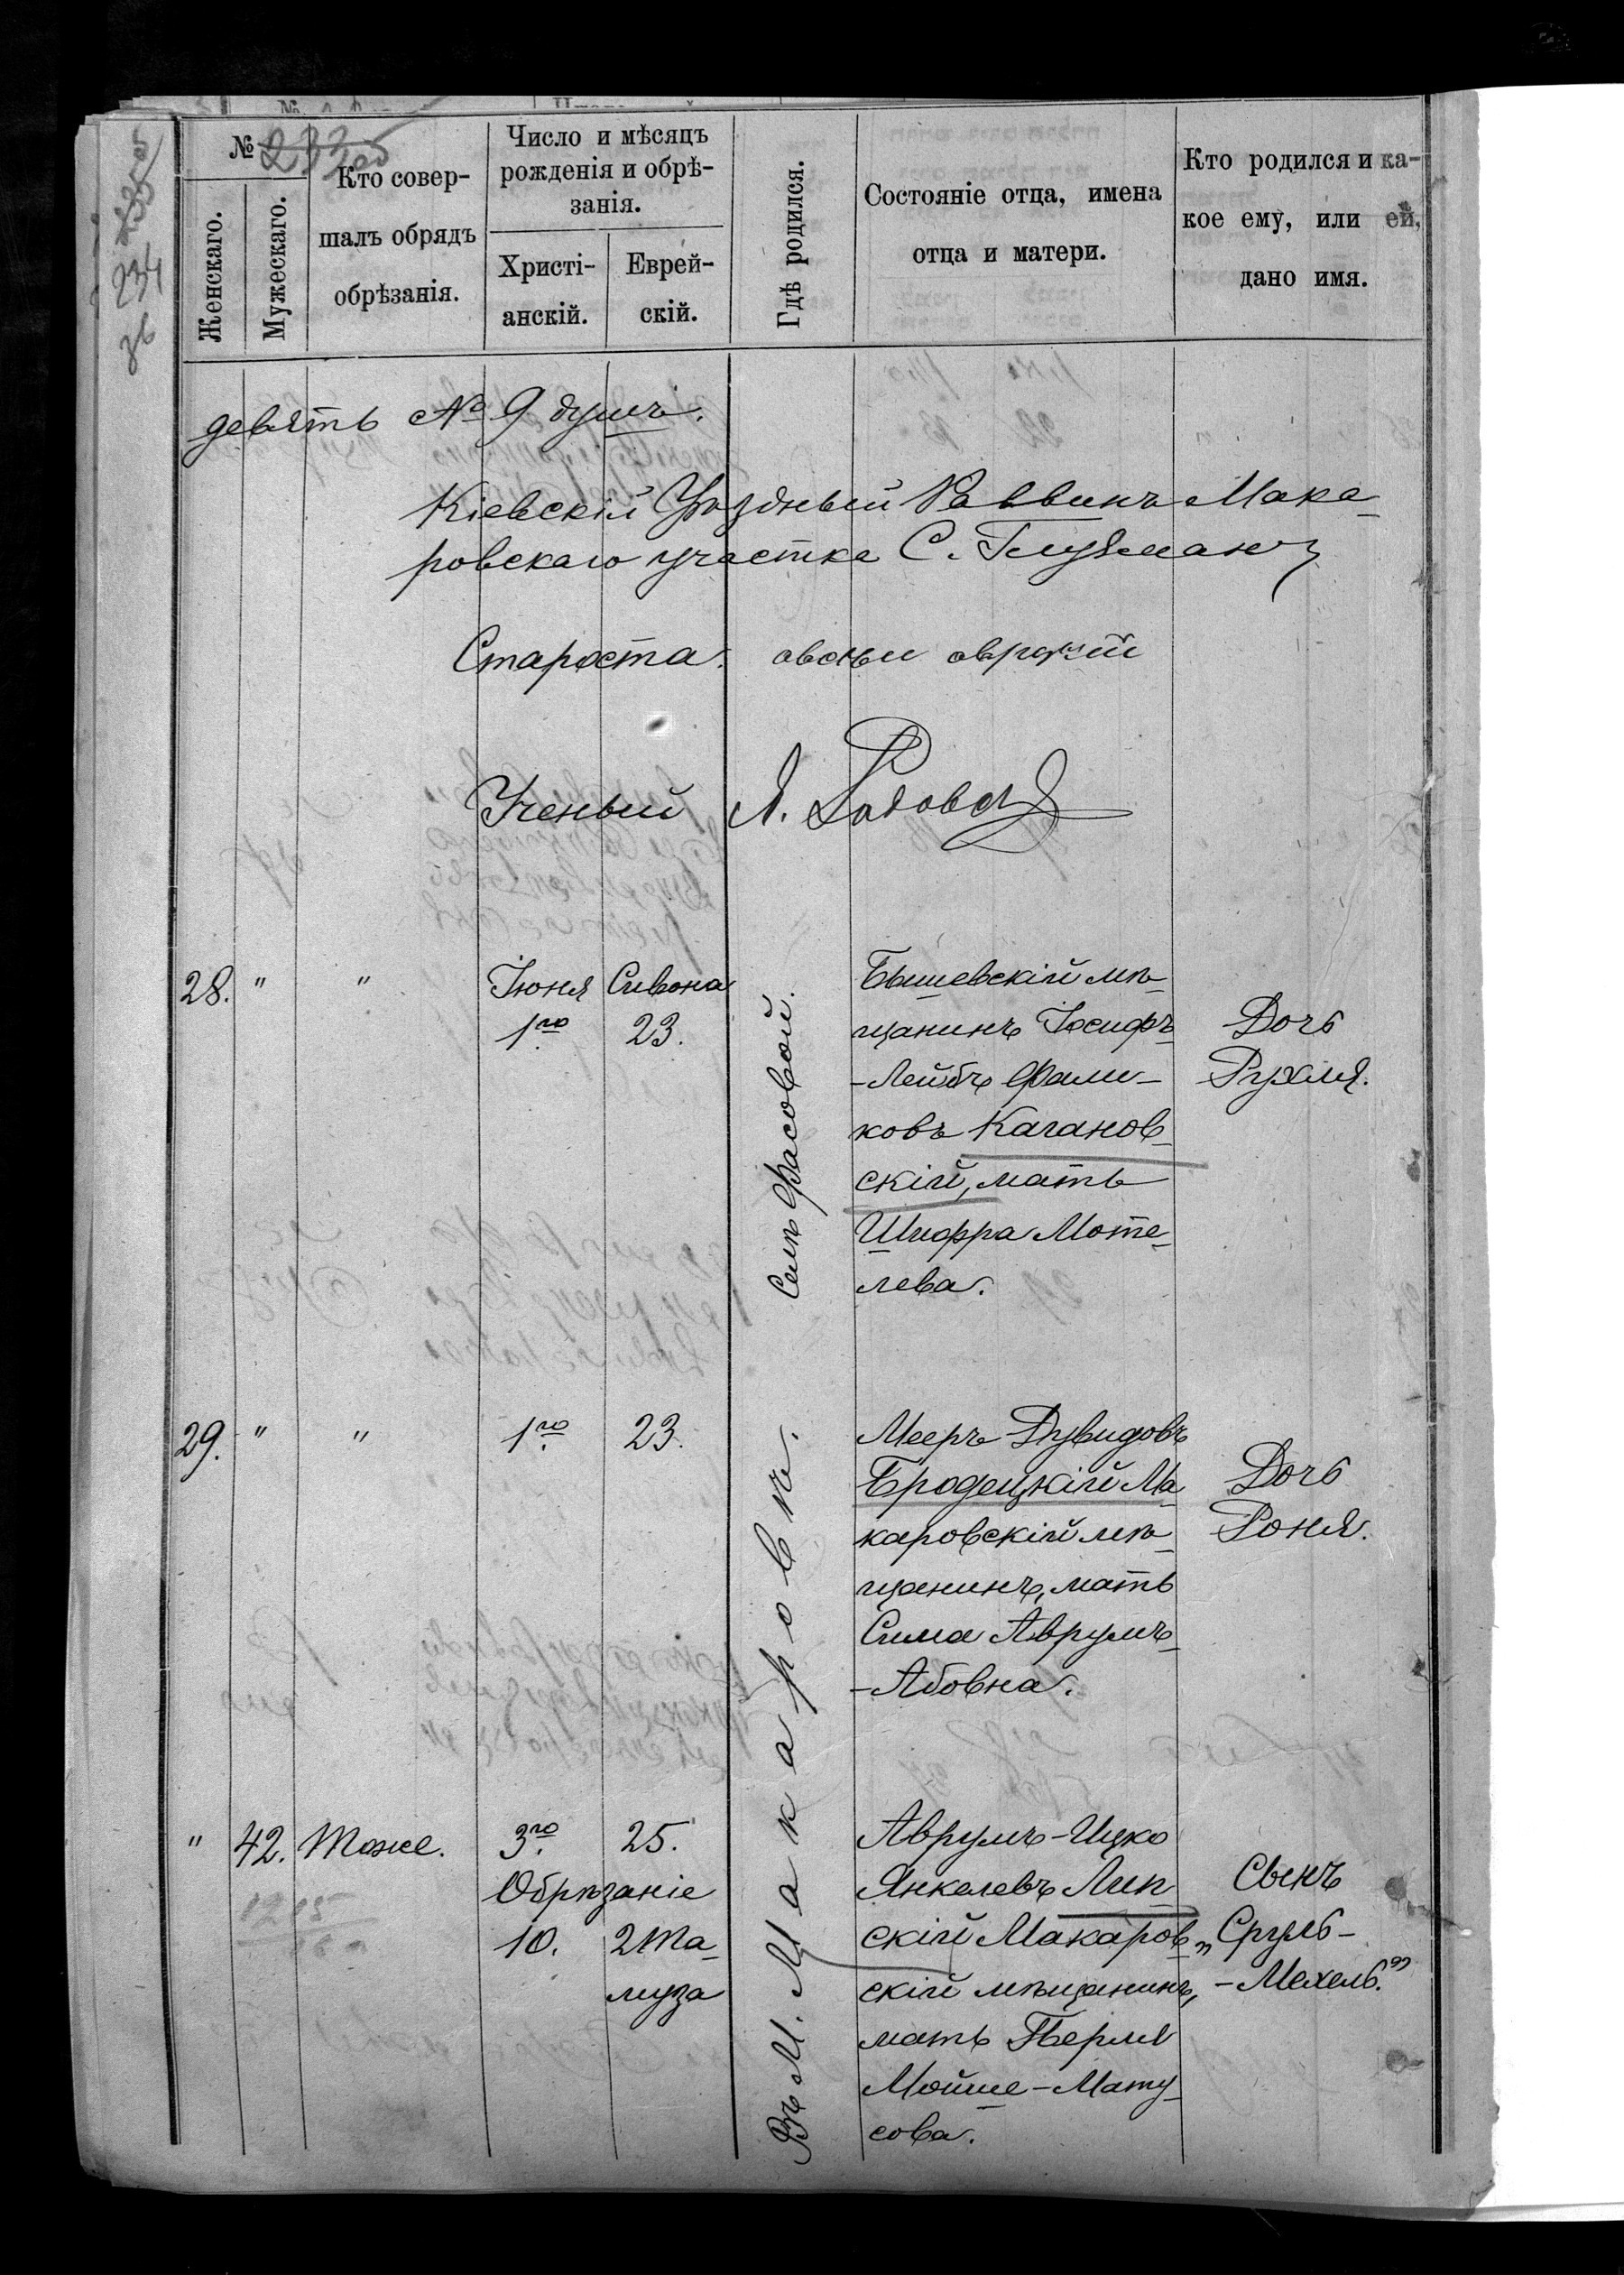 № 233 об
Женскаго.
Мужескаго.
Кто совер-
шалъ обрядъ
обрѣзанія.
Число и мѣсяцъ
рожденія и обрѣ-
занія.
Христі-
анскій.
Еврей-
скій.
Гдѣ родился.
Состояніе отца, имена
отца и матери.
Кто родился и ка-
кое ему, или ей,
дано имя.
234
об
девять № 9 душъ.
Кіевскій Уѣздный Раввинъ Мака-
ровскаго участка С.
Староста
Ученый
28. " " Іюня Сивона
1го. 23.
Селѣ Фасовой.
Бышевскій мѣ-
щанинъ Іосифъ-
-Лейбъ Фали-
ковъ Каганов-
скій, мать
Шифра Моте-
лева.
Дочь
Рухля.
29. " " 1го. 23.
Въ М. Макаровѣ.
Мееръ Дувидовъ
Бродецкій Ма-
каровскій мѣ-
щанинъ, мать
Сима Аврумъ-
-Абовна.
Дочь
Роня.
" 42. Тоже. 3го. 25.
Обрѣзаніе
10. 2 Та-
муза
Аврумъ-Ицко
Янкелевъ Лип-
скій Макаров-
скій мѣщанинъ,
мать Перля
Мойше-Мату-
сова.
Сынъ
„Сруль-
-Мехель."